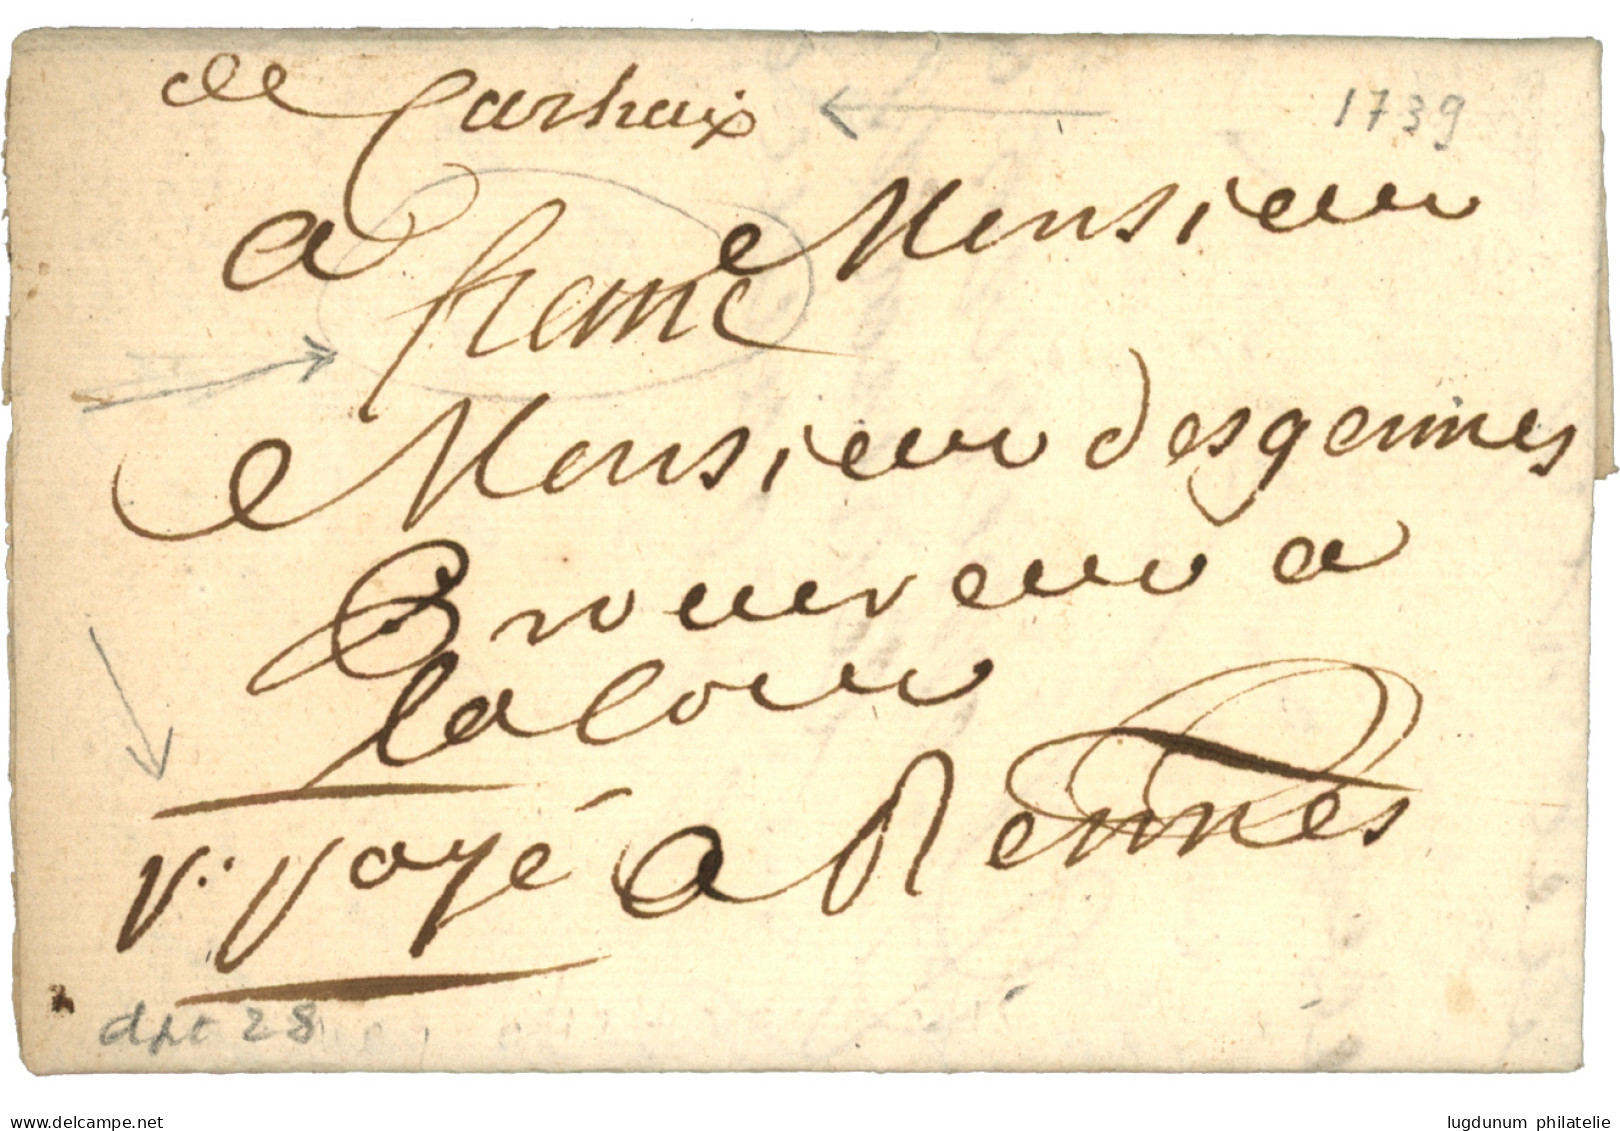 de Carhaix
1739
a Monsieur
franc
Monsieur desgennes
Procureur a
la Cour
V. payé a Rennes
dpt 28
www.delcampe.net
lugdunum philatelie